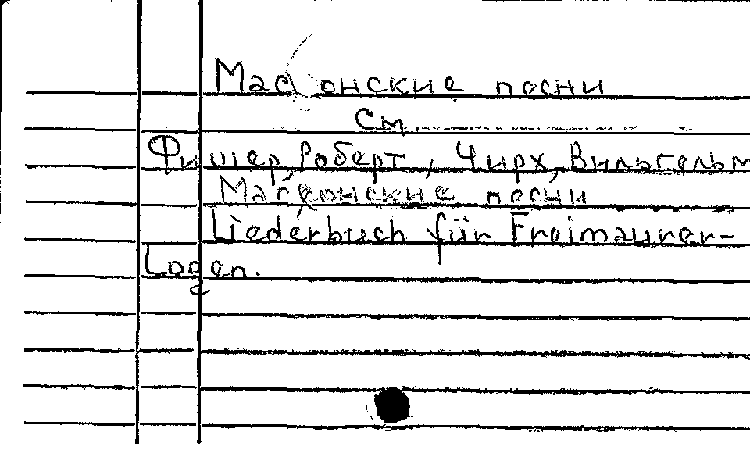 Масонские песни
См.
Фишер, Роберт, Чирх, Вильгельм
Масонские песни
Liederbuch für Freimaurer-
Logen.